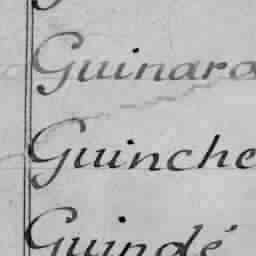 Guinard
Guinche
Guindé